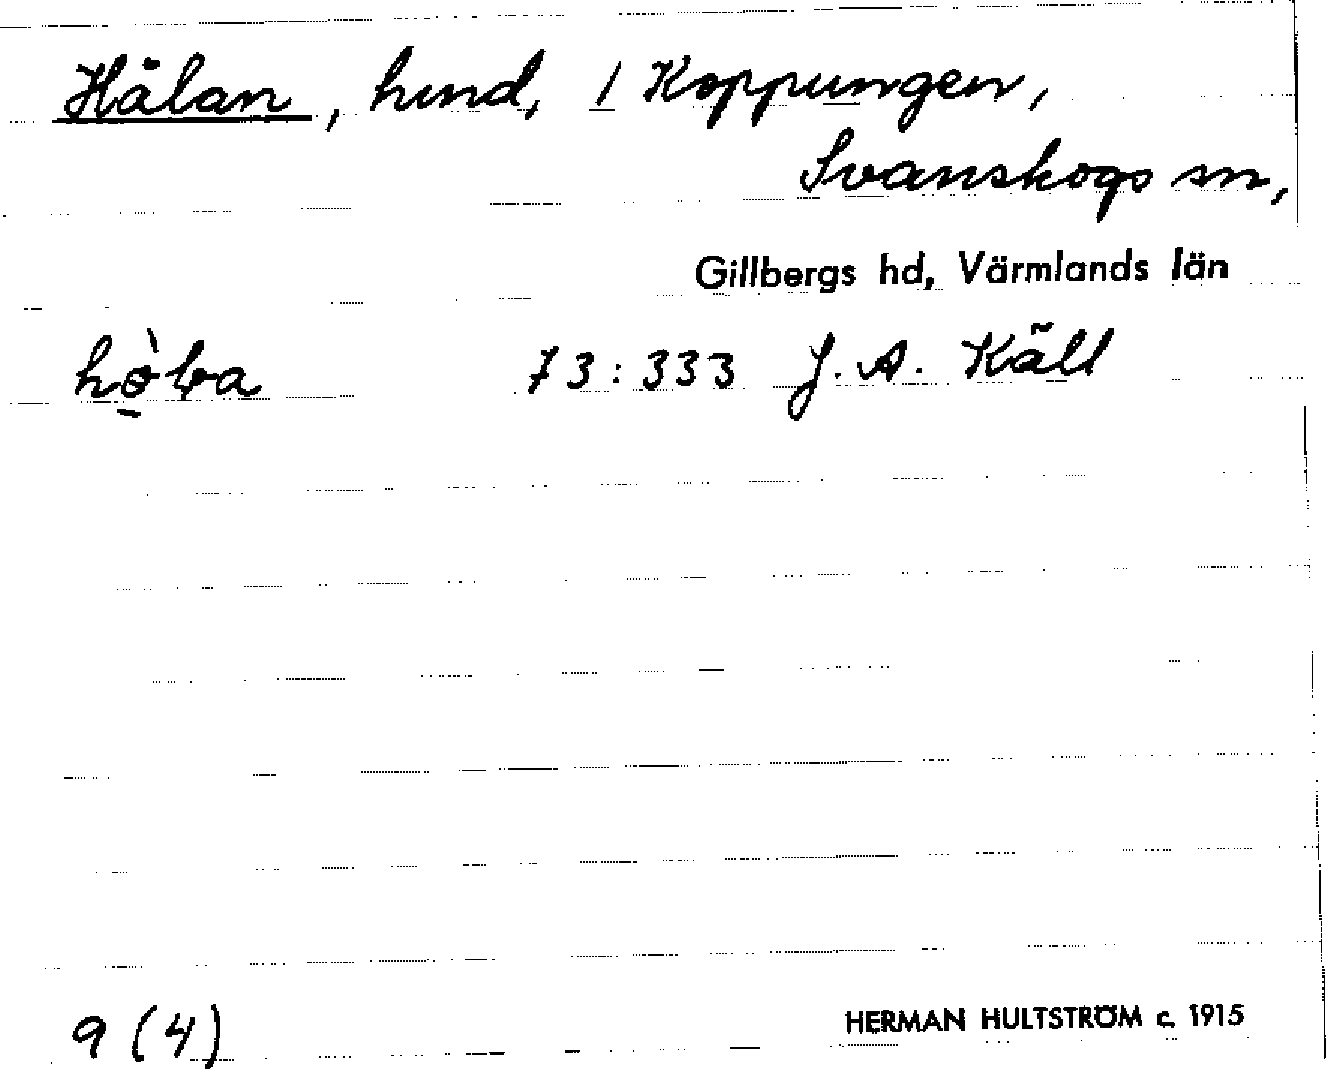 Hålan, hmd, 1 Koppungen,
Svanskogs sn,
Gillbergs hd, Värmlands län
73:333 J. A. Käll
9 (4)
HERMAN HULTSTRÖM c. 1915